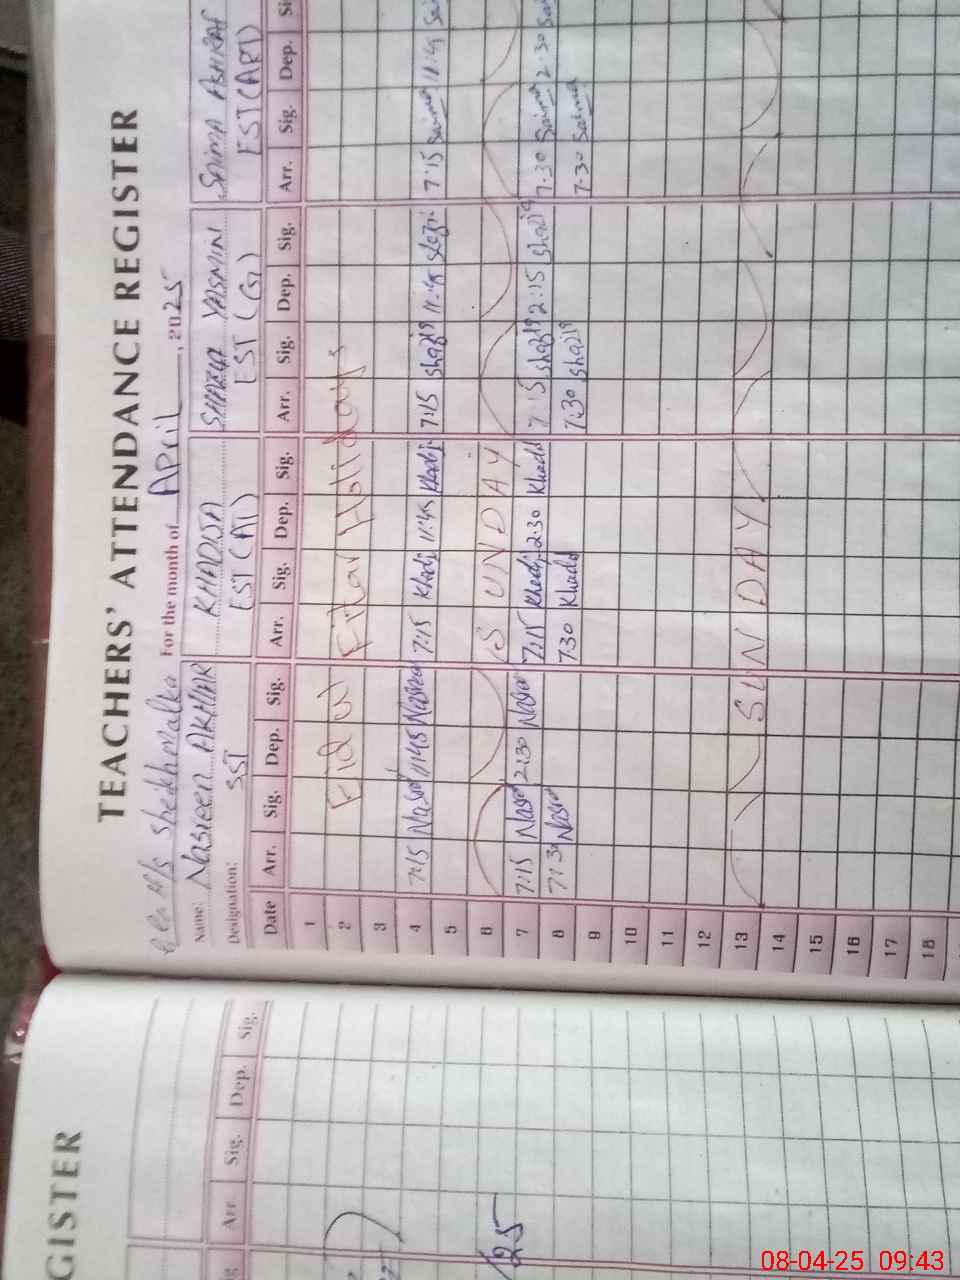 TEACHERS' ATTENDANCE REGISTER
For the month of April, 2025
Name: Nasreen AKHTAR KHADIJA SHAZIA YASMIN SAIMA ASHRAF
Designation: SST EST (AT) EST (G) EST (ART)
Date Arr. Sig. Dep. Sig. Arr. Sig. Dep. Sig. Arr. Sig. Dep. Sig. Arr. Sig. Dep. Si
1
2 Eid ul Fitar Holidays
3
4 7:15 Nasr 11:45 Nasree 7:15 Khadj 11:45 Khadj 7:15 Shazi 11:45 Shazi 7:15 Saima 11:45 Sai
5
6 SUNDAY
7 7:15 Nasr 2:30 Nasr 7:15 Khadj 2:30 Khadi 7:15 Shazi 2:15 Shazi 7:30 Saima 2:30 Sai
8 7:30 Nasr 7:30 Khadi 7:30 Shazi 7:30 Saima
9
10
11
12
13 SUNDAY
14
15
16
17
18
GISTER
Arr. Sig. Dep. Sig.
08-04-25 09:43